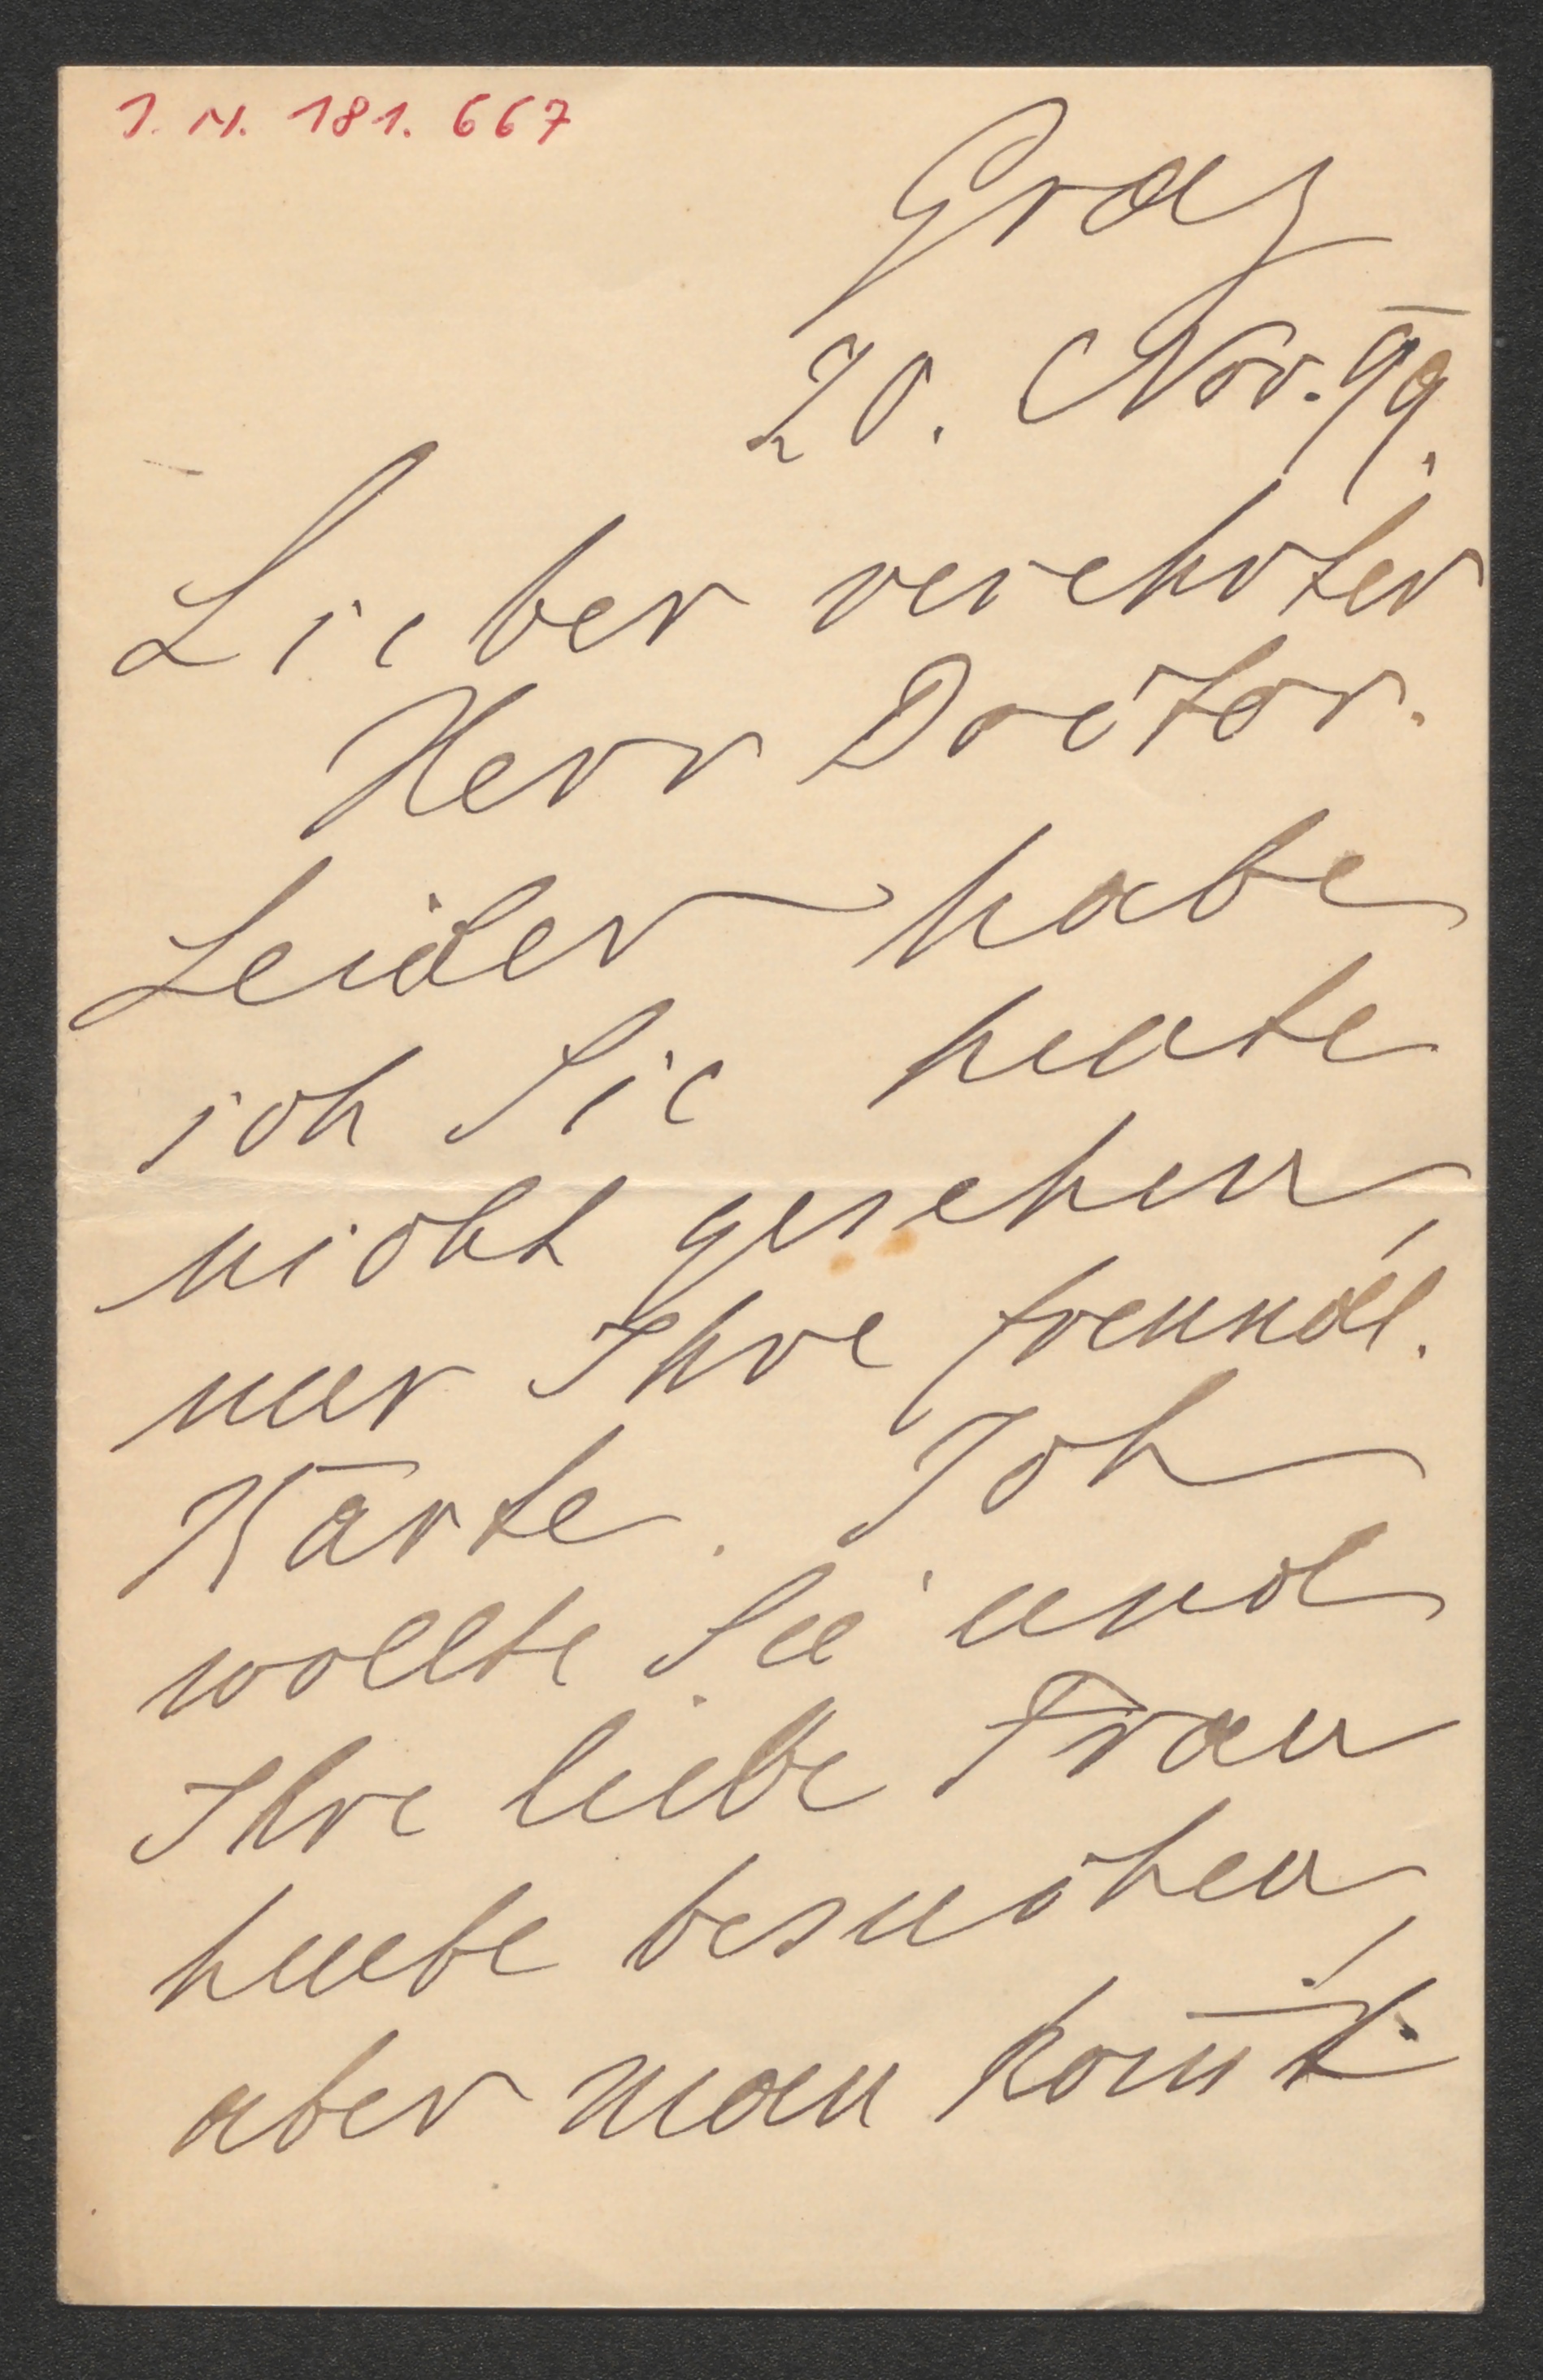 J. N. 181.667
Graz
20. Nov. 99.
Lieber verehrter
Herr Doctor.
Leider habe
ich Sie heute
nicht gesehen,
nur Ihre freundl.
Karte. Ich
wollte Sie und
Ihre liebe Frau
heute besuchen,
aber man kom̄t